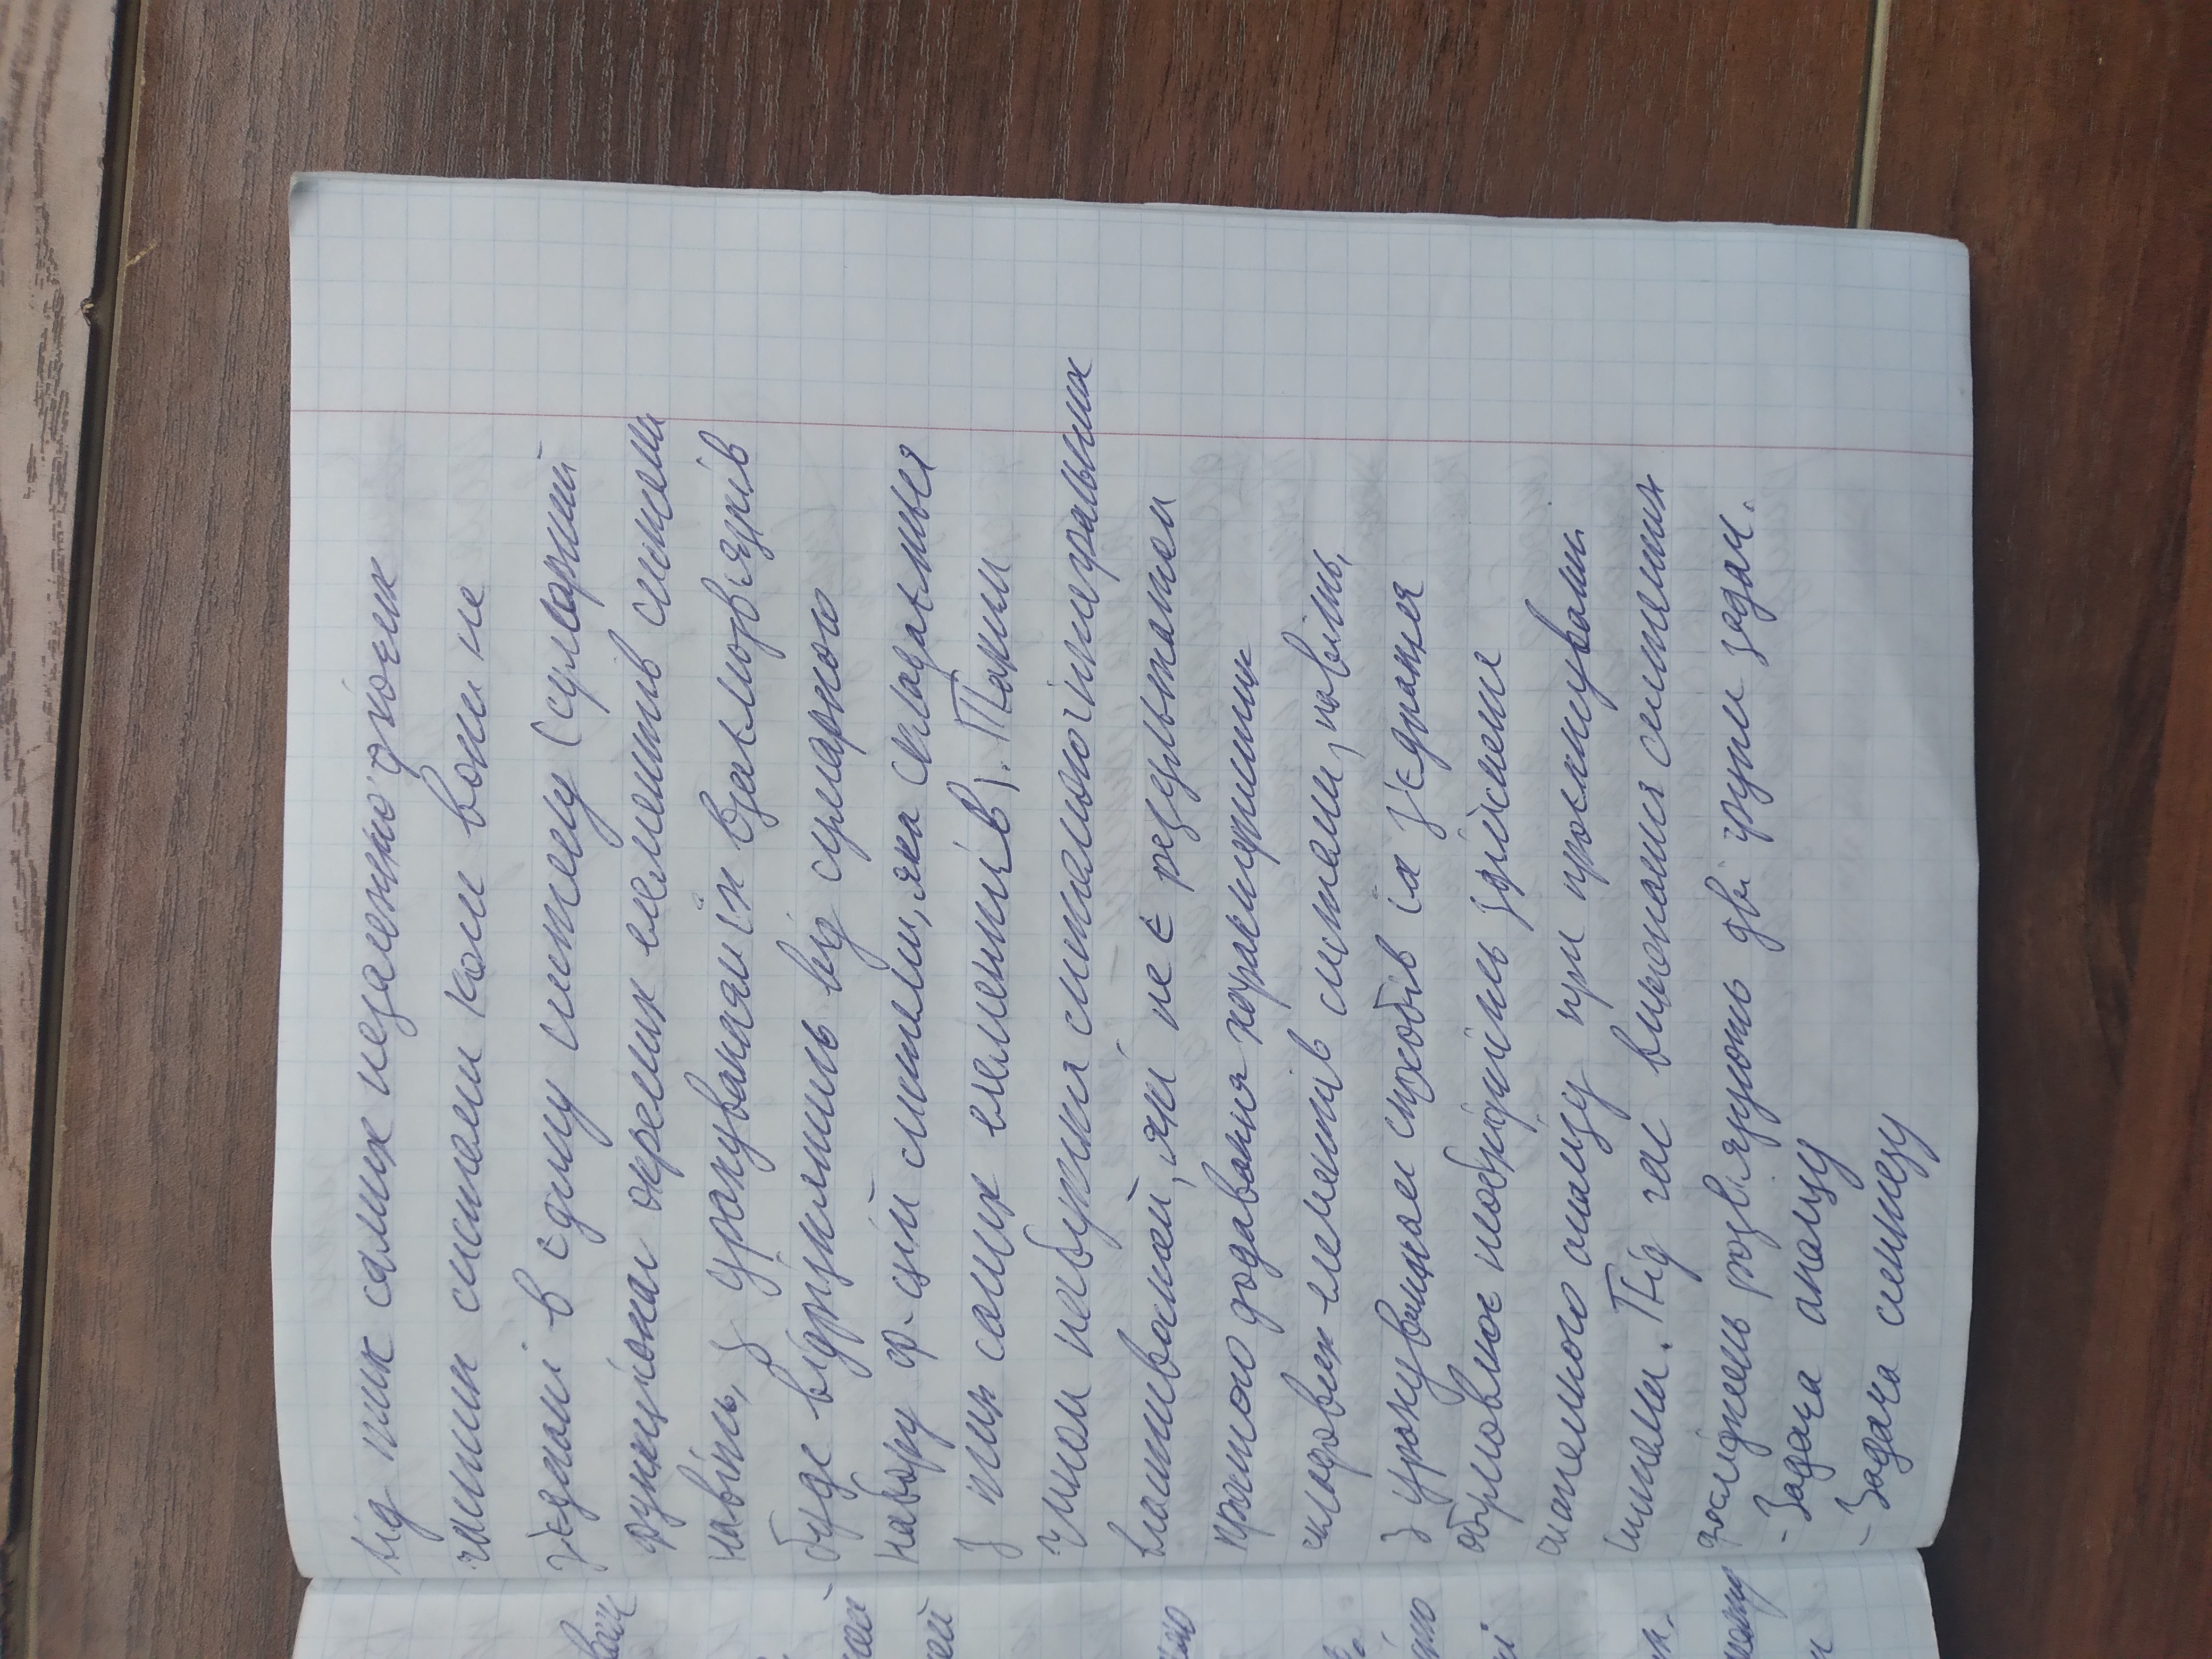 від тих самих незалежно діючих
частин системи коли вони не
з'єднані в єдину систему (сумарний
функціонал окремих елементів системи
навіть, з урахуванням їх взаємозв'язків
буде відрізнятись від сумарного
набору ф-цій системи, яка складається
з тих самих елементів). Таким
чином набуття системою інтегральних
властивостей, які не є результатом
простого додавання характеристик
складових елементів системи, навіть,
з урахуванням способів їх з'єднання
обумовлює необхідність здійснення
системного аналізу при проєктуванні
системи. Під час виконання системних
досліджень розв'язують дві групи задач.
- Задача аналізу
- Задача синтезу